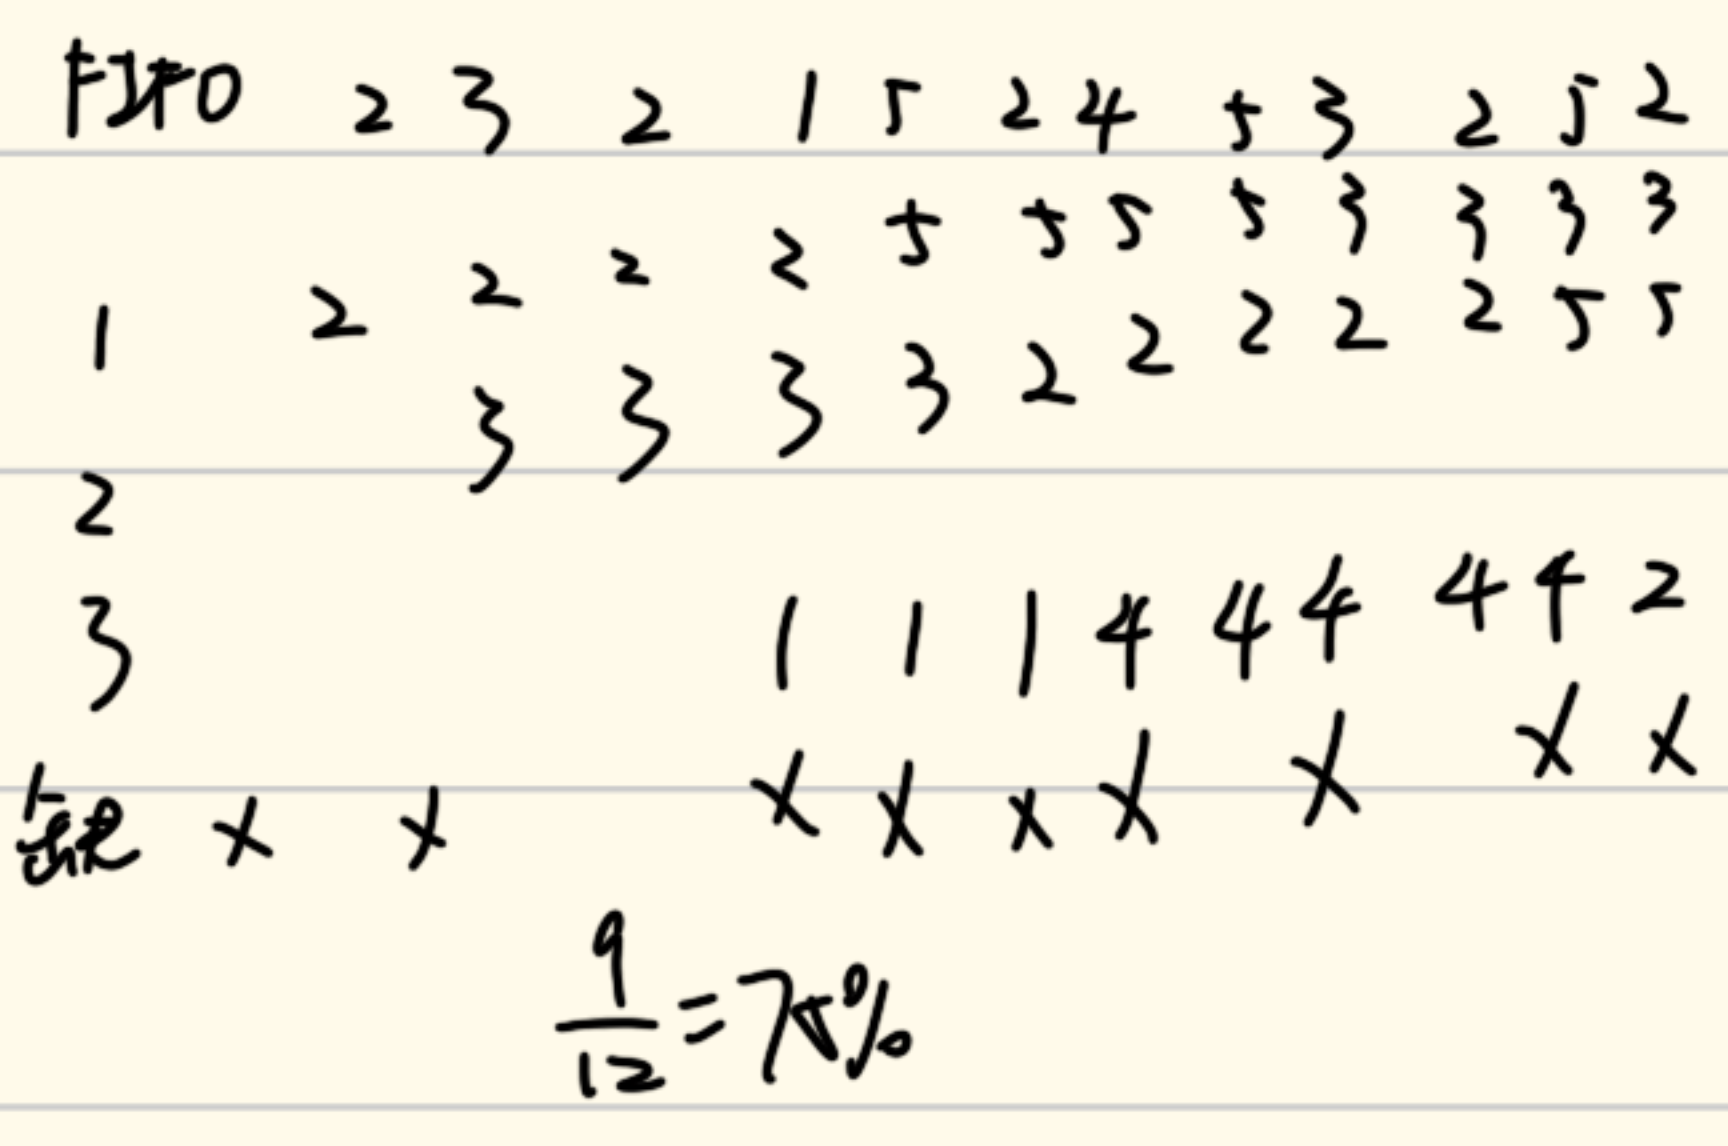 FIFO 2 3 2 1 5 2 4 5 3 2 5 2
1 2 2 2 2 5 5 5 5 3 3 3 3
3 3 3 3 2 2 2 2 2 5 5
2
3 1 1 1 4 4 4 4 4 2
缺 × × × × × × × × ×
9/12 = 75%